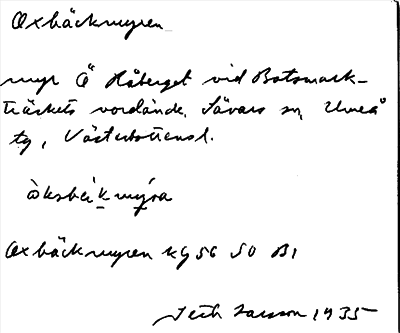 Oxbäckmyren
myr Ö Håberget vid Botsmark-
träskets nordände, Sävars sn, Umeå
tg, Västerbottensl.
Oxbäckmyren kg 56 SO B1
Larsson 1935